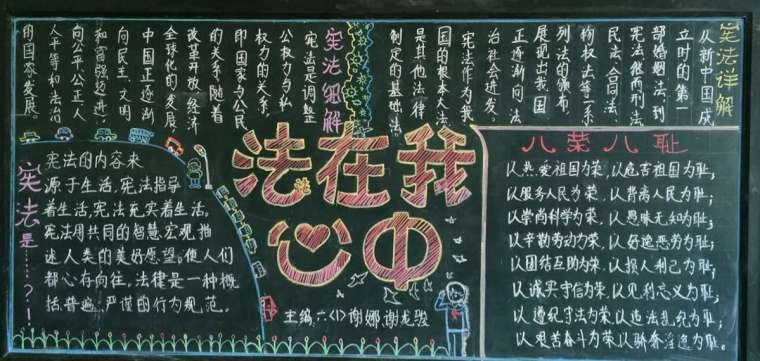 宪法详解
从新中国成
立时的第一
部婚姻法,到
宪法继而刑法
民法、合同法、
物权法等一系
列法的颁布,
展现出我国
正逐渐向法
治社会进发。
宪法作为我
国的根本大法,
是其他法律
制定的基础法。
宪法细解
宪法是调整
公权力与私
权力的关系,
即国家与公民
的关系,随着
改革开放、经济
全球化的发展,
中国正逐渐
向民主、文明
和富强迈进;
向公平公正人
人平等和法治
的国家发展。
法在我
心中
主编:六<1>谢娜 谢龙骏
宪法是……?!
宪法的内容来
源于生活,宪法指导
着生活,宪法充实着生活。
宪法用共同的智慧宏观描
述人类的美好愿望。使人们
都心存向往,法律是一种概
括、普遍、严谨的行为规范。
八荣八耻
以热爱祖国为荣,以危害祖国为耻;
以服务人民为荣,以背离人民为耻;
以崇尚科学为荣,以愚昧无知为耻;
以辛勤劳动为荣,以好逸恶劳为耻;
以团结互助为荣,以损人利己为耻;
以诚实守信为荣,以见利忘义为耻;
以遵纪守法为荣,以违法乱纪为耻;
以艰苦奋斗为荣,以骄奢淫逸为耻。